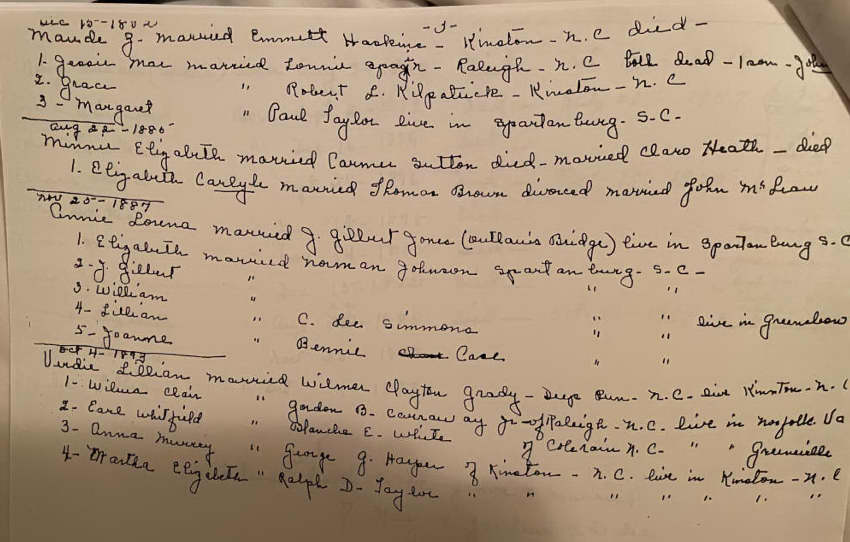 Dec 15-188
-5-
Maude G. married Emmett Haskins - Kinston - N.C died -
1. Jessie Mae married Lonnie - Raleigh - N.C both dead - 1 son - John
2. Grace " Robert L. Kilpatrick - Kinston - N.C
3 - Margaret " Paul Taylor live in Spartanburg - S.C -
Aug 22 - 1885
Minnie Elizabeth married Carmer Sutton died - married Claro Heath - died
1. Elizabeth Carlyle married Thomas Brown divorced married John
Nov 25-1887
Annie Lorena married J. Gilbert Jones (Outlaw's Bridge) live in Spartanburg S.C
1. Elizabeth married Norman Johnson Spartanburg - S-C -
2-J. Gilbert " " "
3. William " " "
4- Lillian " C. Lee Simmons " " live in Greensboro
5- Joanne " Bennie Case " "
Oct 4-1893
Verdie Lillian married Wilmer Clayton Grady - Deep Run - N.C - live Kinston - N.C
1- Wilma Clair " Gordon B. Carraway Jr - of Raleigh - N.C. live in Norfolk Va
2- Earl Whitfield " Blanche E. White of Colerain N.C. " " Greenville
3- Anna Murrey " George G. Harper of Kinston - N.C. live in Kinston - N.C
4- Martha Elizabeth " Ralph D- Taylor " " " " " "